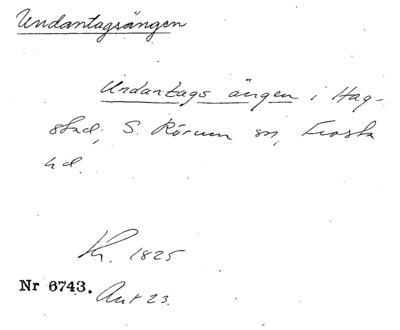 Undantagsängen
Undantags ängen i Hag-
stad, S. Rörum sn, Frosta
hd.
Kr. 1825
Nr 6743. Ant 23.